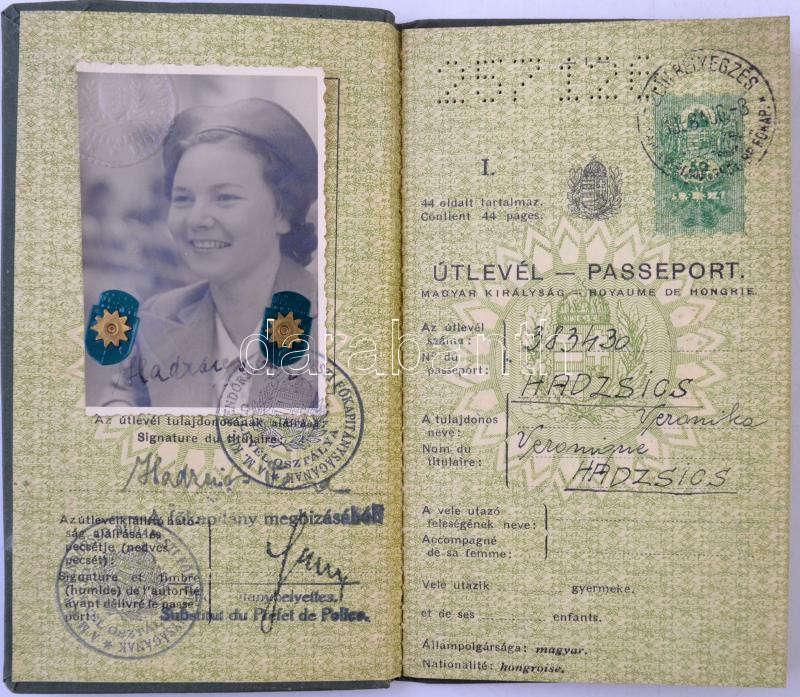 Az útlevél tulajdonosának aláírása
Signature du titulaire:
A főkapitány megbízásából
Az útlevélkiállító ható-
ság aláírása és
pecsétje (nedves
pecsét):
Signature et timbre
(humide) de l'autorité
ayant délivré le passe-
port:
Substitut du Préfet de Police.
257126
I.
44 oldalt tartalmaz.
Contient 44 pages.
50
1934
ÚTLEVÉL — PASSEPORT.
MAGYAR KIRÁLYSÁG — ROYAUME DE HONGRIE.
Az útlevél
száma:
No du
passeport:
383430
HADZSICS
Veronika
A tulajdonos
neve:
Nom du
titulaire:
Veronique
HADZSICS
A vele utazó
feleségének neve:
Accompagné
de sa femme:
Vele utazik ........ gyermeke.
et de ses ........ enfants.
Állampolgársága: magyar.
Nationalité: hongroise.
darabanth.com